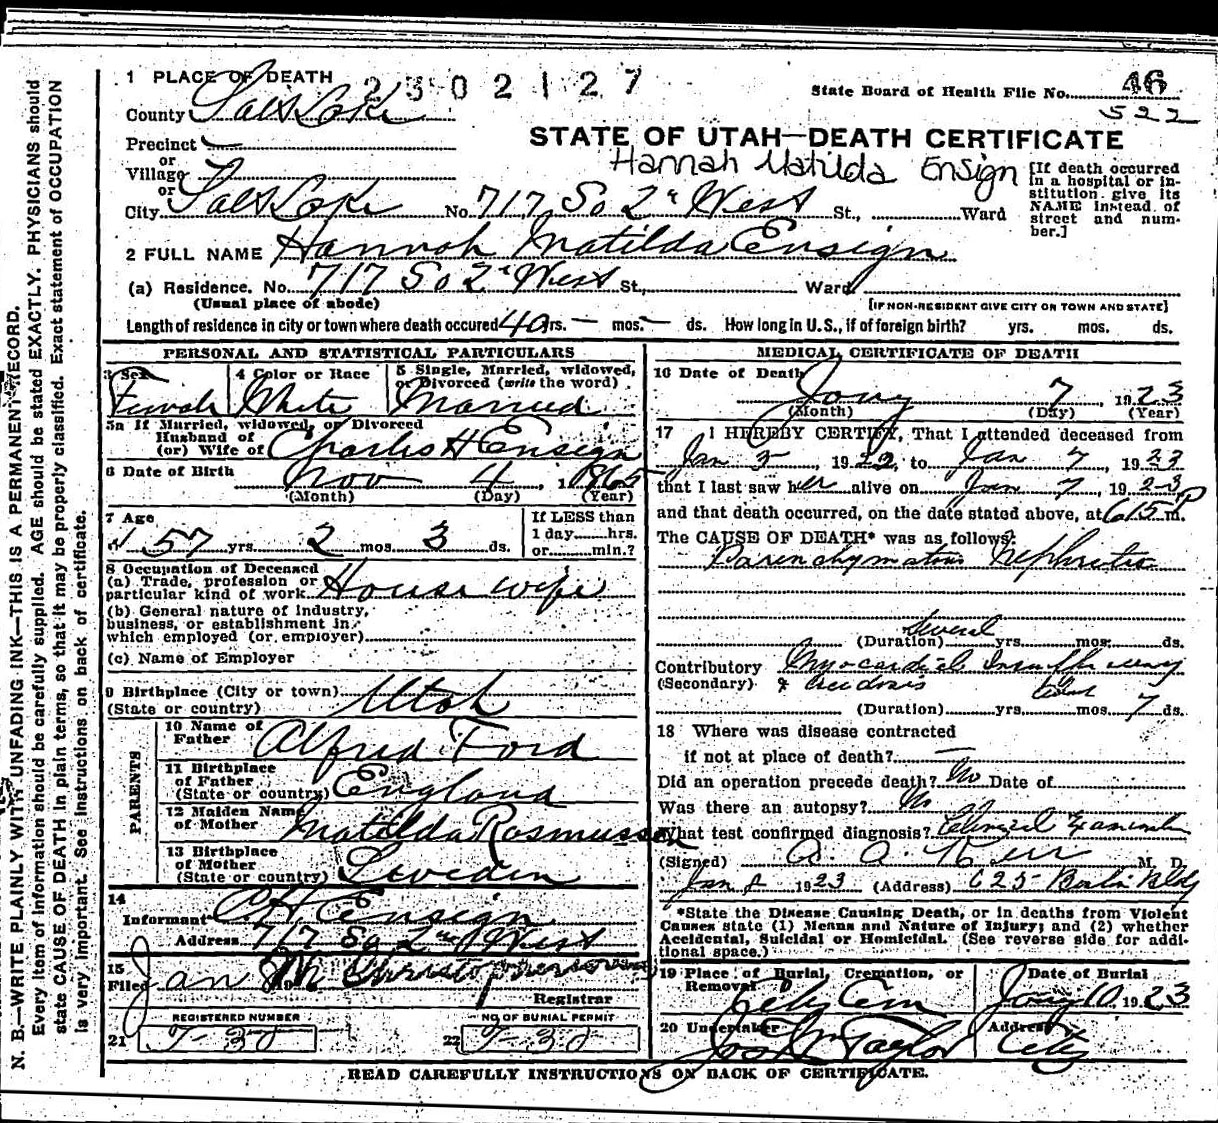 1 PLACE OF DEATH 2302127
State Board of Health File No. 46
County Salt Lake
522
STATE OF UTAH—DEATH CERTIFICATE
Precinct
or
Village
Hannah Matilda Ensign
[If death occurred in a hospital or institution give its NAME instead of street and number.]
or
City Salt Lake No. 717 So 2d West St., Ward
2 FULL NAME Hannah Matilda Ensign
(a) Residence. No. 717 So 2d West St., Ward
(Usual place of abode) [IF NON-RESIDENT GIVE CITY OR TOWN AND STATE]
Length of residence in city or town where death occured 40 yrs. — mos. — ds. How long in U.S., if of foreign birth? yrs. mos. ds.
PERSONAL AND STATISTICAL PARTICULARS
3 Sex Female
4 Color or Race White
5 Single, Married, widowed, or Divorced (write the word) Married
5a If Married, widowed, or Divorced
Husband of
(or) Wife of Charles H Ensign
6 Date of Birth Nov 4, 1865
(Month) (Day) (Year)
7 Age 57 yrs. 2 mos. 3 ds.
If LESS than
1 day......hrs.
or......min.?
8 Occupation of Deceased
(a) Trade, profession or
particular kind of work. House wife
(b) General nature of industry,
business, or establishment in
which employed (or employer)
(c) Name of Employer
9 Birthplace (City or town)
(State or country) Utah
PARENTS
10 Name of
Father Alfred Ford
11 Birthplace
of Father
(State or country) England
12 Maiden Name
of Mother Matilda Rasmussen
13 Birthplace
of Mother
(State or country) Sweden
14
Informant C H Ensign
Address 717 So 2nd West
15
Filed Jan
Registrar
REGISTERED NUMBER
21 T-30
NO OF BURIAL PERMIT
22 T-30
MEDICAL CERTIFICATE OF DEATH
16 Date of Death Jany 7, 1923
(Month) (Day) (Year)
17 I HEREBY CERTIFY, That I attended deceased from
Jan 5, 1923, to Jan 7, 1923
that I last saw her alive on Jan 7, 1923
and that death occurred, on the date stated above, at 615 P m.
The CAUSE OF DEATH* was as follows:
Parenchymatous Nephritis
(Duration) Several yrs. mos. ds.
Contributory Myocardial Insufficiency
(Secondary) &
(Duration) yrs. mos. 7 ds.
18 Where was disease contracted
if not at place of death? —
Did an operation precede death? No Date of
Was there an autopsy? No
What test confirmed diagnosis? Clinical Examination
(Signed) A. A. Kerr M. D.
Jan 8 1923 (Address) 625 Bldg
*State the Disease Causing Death, or in deaths from Violent
Causes state (1) Means and Nature of Injury; and (2) whether
Accidental, Suicidal or Homicidal. (See reverse side for addi-
tional space.)
19 Place of Burial, Cremation, or
Removal City Cem
Date of Burial
Jany 10 1923
20 Undertaker
Jos Wm Taylor
Address
City
READ CAREFULLY INSTRUCTIONS ON BACK OF CERTIFICATE.
N. B.—WRITE PLAINLY WITH UNFADING INK—THIS IS A PERMANENT RECORD.
Every item of information should be carefully supplied. AGE should be stated EXACTLY. PHYSICIANS should
state CAUSE OF DEATH in plain terms, so that it may be properly classified. Exact statement of OCCUPATION
is very important. See instructions on back of certificate.